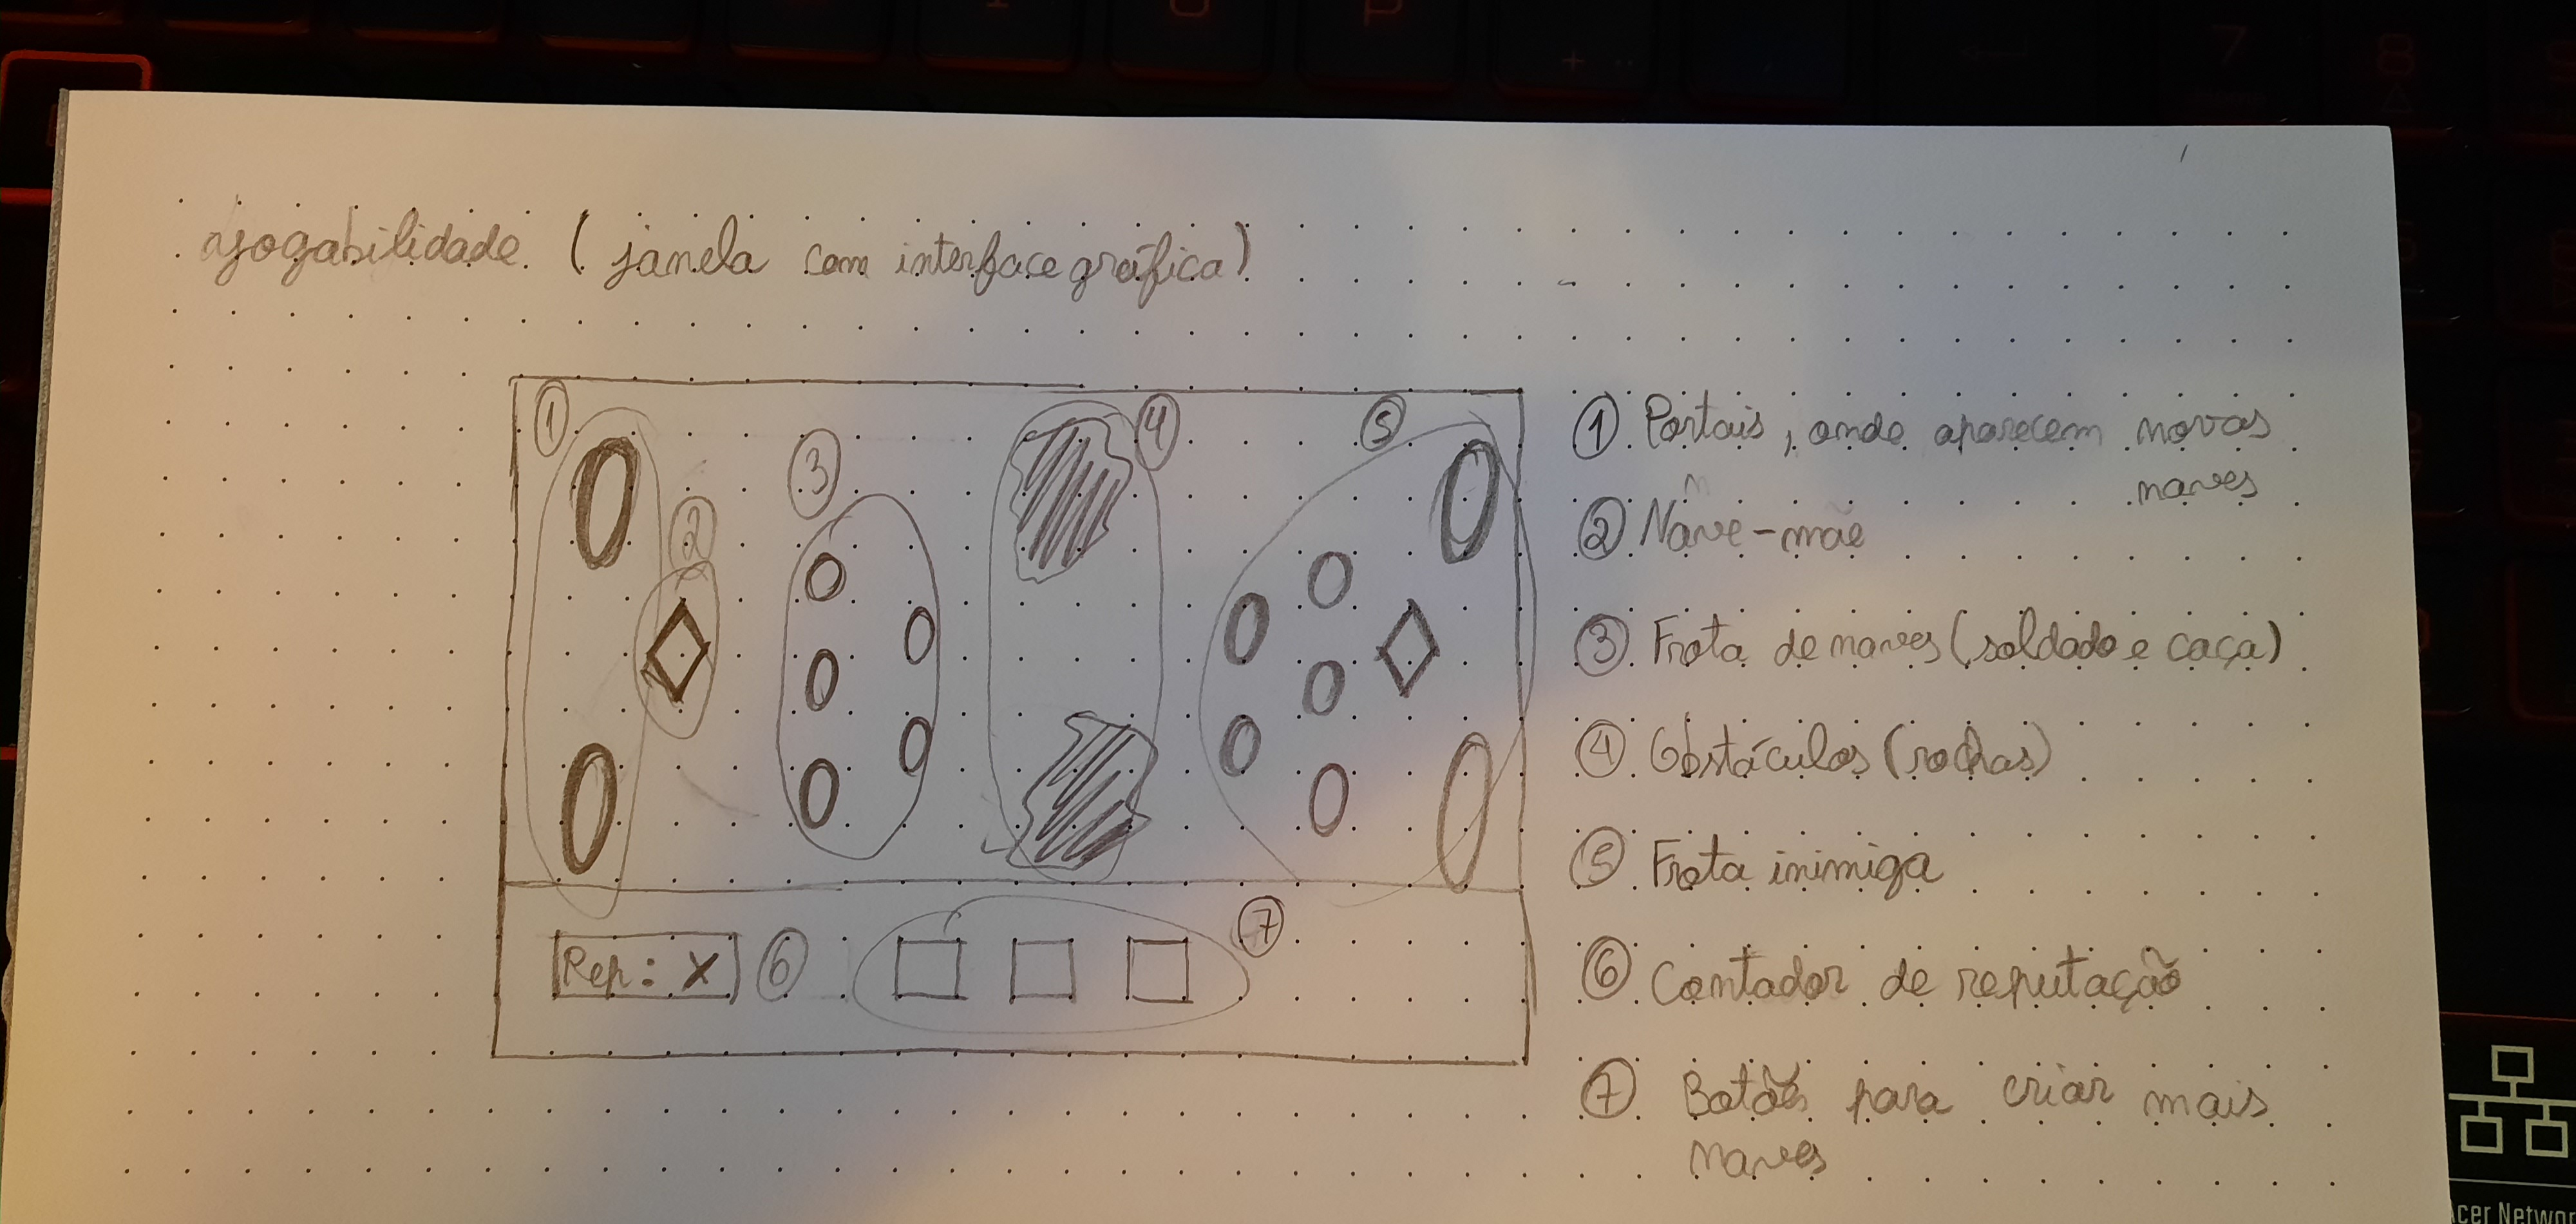 ajogabilidade. (janela com interface gráfica)
1
2
3
4
5
Rep: X
6
7
1 Portais, onde aparecem novas
naves
2 Nave-mãe
3 Frota de naves (soldado e caça)
4 Obstáculos (rochas)
5 Frota inimiga
6 Contador de reputação
7 Botões para criar mais
naves
7
8
O
P
+
Acer Networ